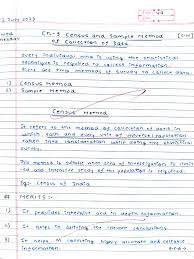 July 2023
Ch-3 Census and Sample Method
of Collection of Data
Every individual who is using the statistical
technique is required to collect information.
There are two methods of survey to collect data.
1) Census Method
2) Sample Method
Census Method
It refers to the method of collection of data in
which each and every unit of universal population
taken into consideration while doing the statistical
This method is suitable when area of investigation is limited
and intensive study of the population is required
Eg: Census of India
MERITS:-
1) It provides intensive and in depth information
2) It helps in studying the relevant conclusions
3) It helps in collecting highly accurate and reliable
information